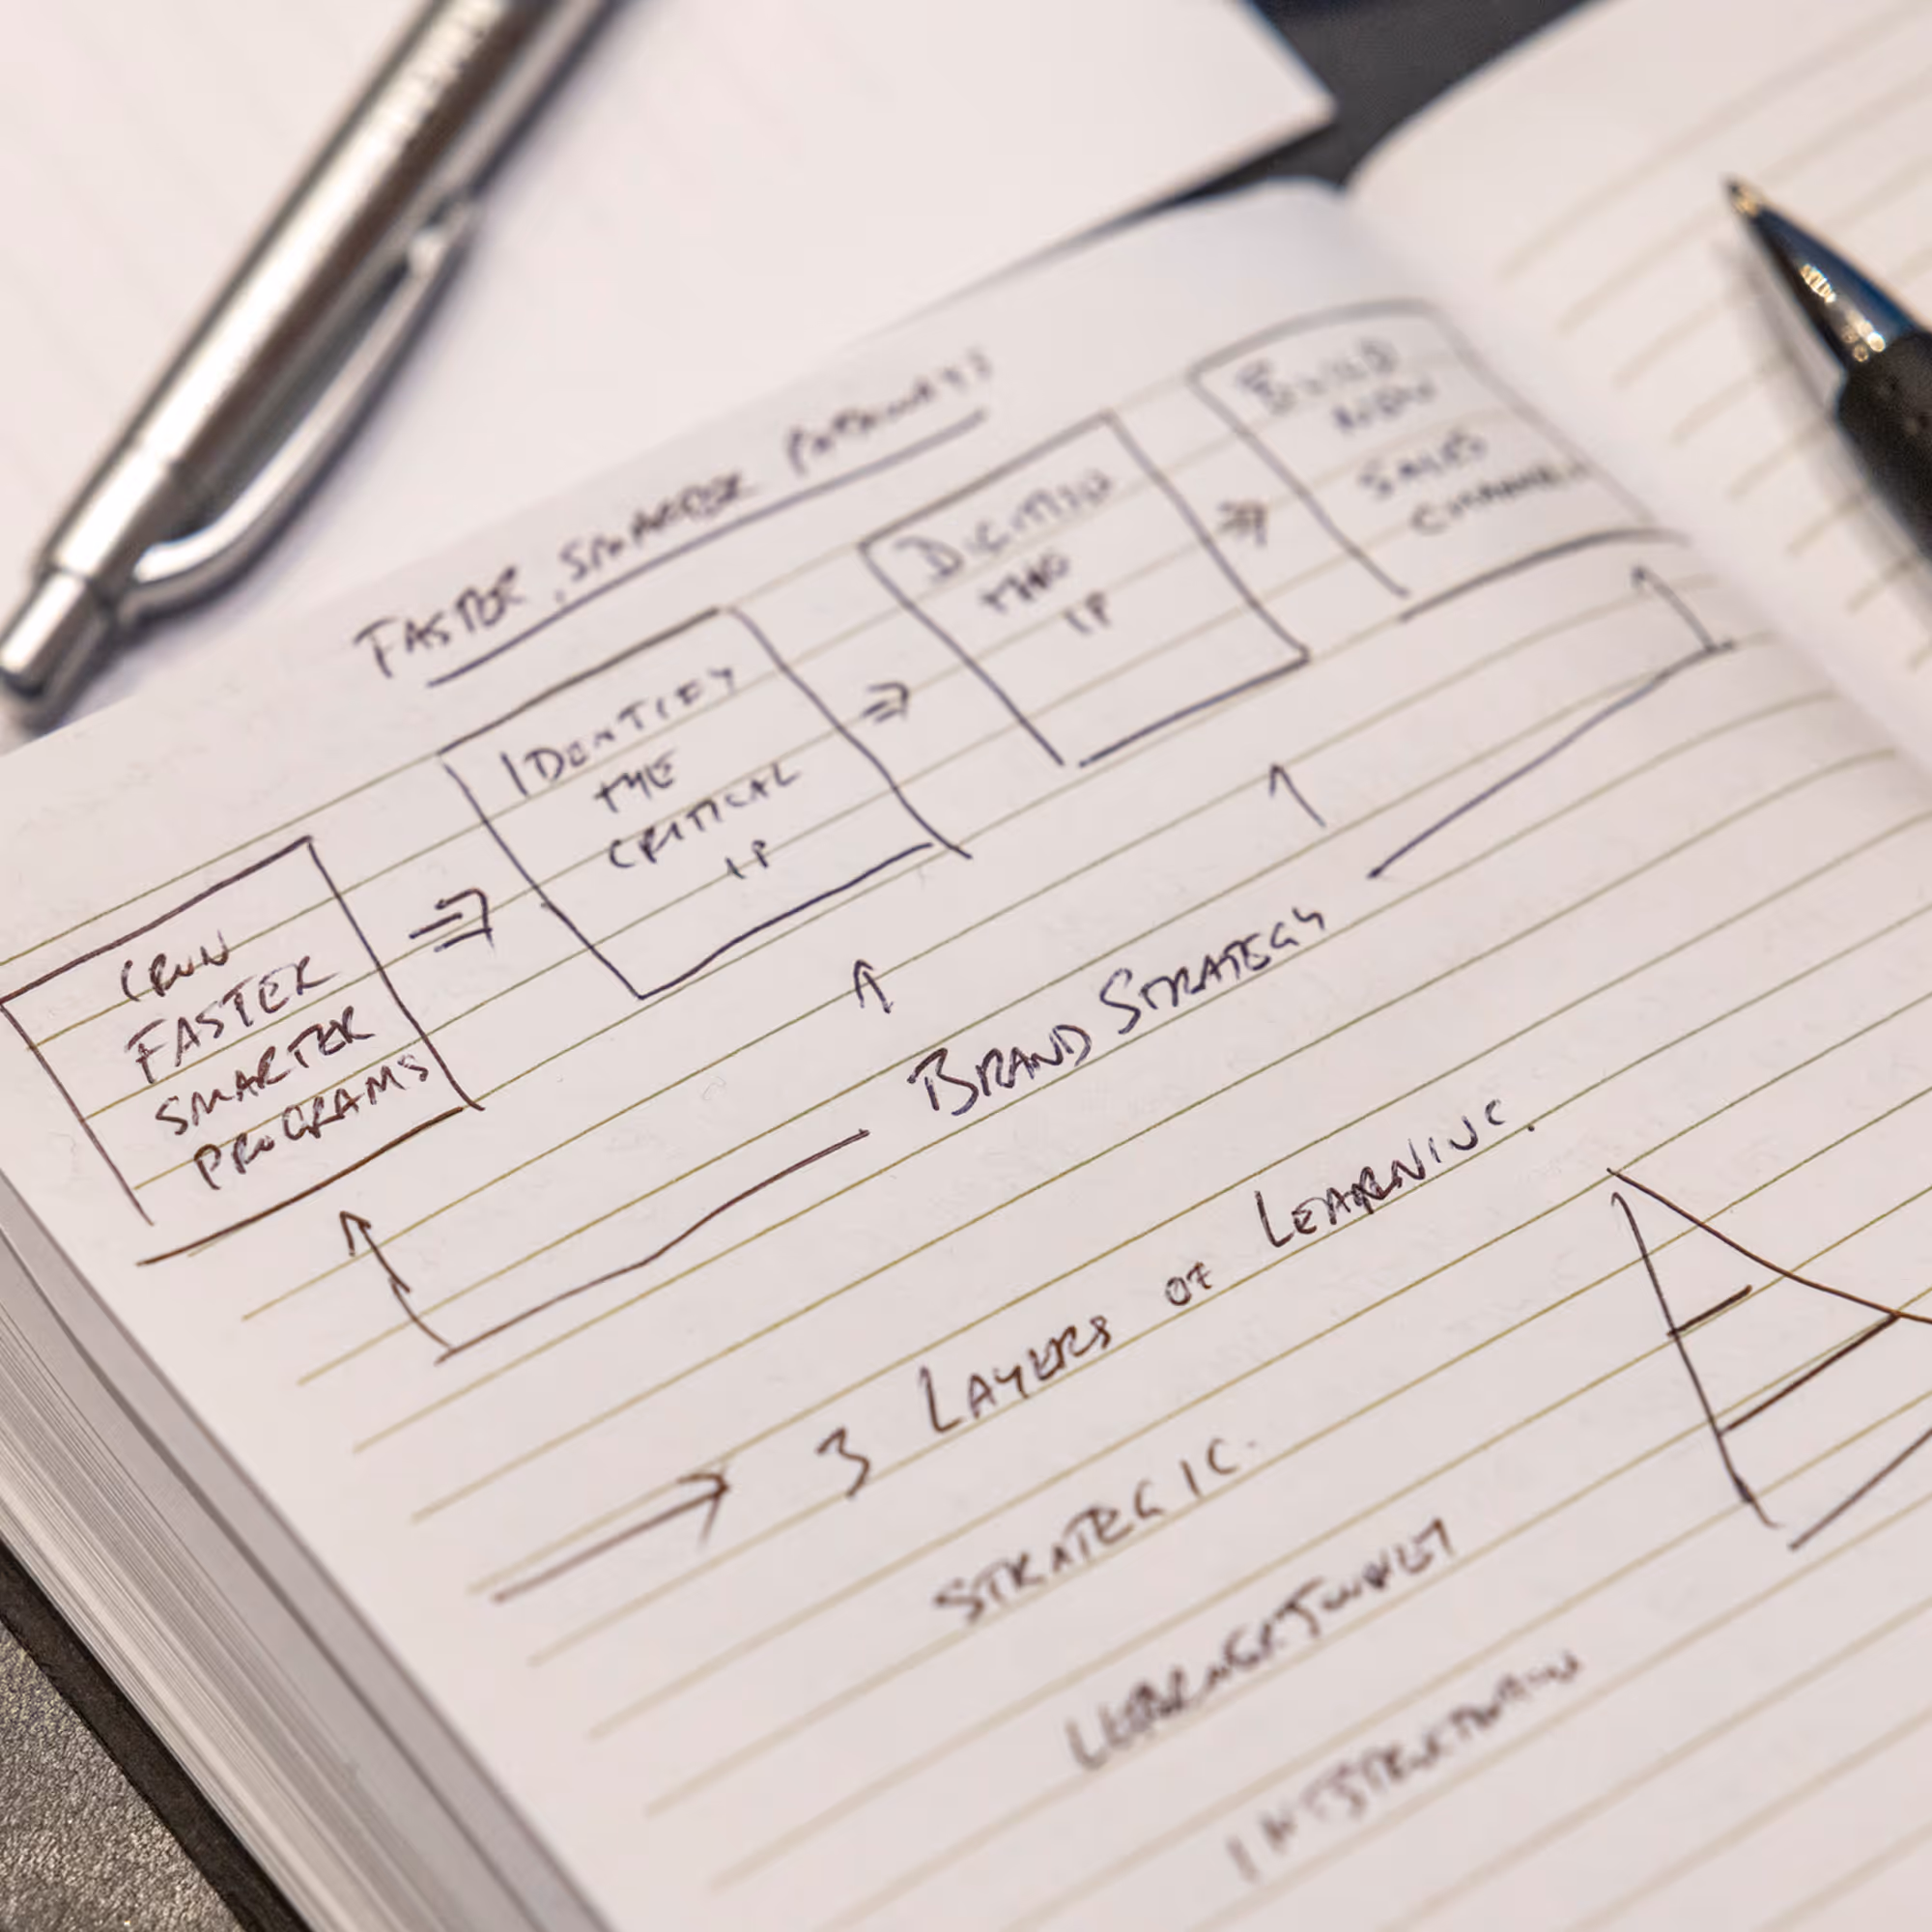 FASTER, SMARTER PATHWAYS
CRUN
FASTER
SMARTER
PROGRAMS
IDENTIFY
THE
CRITICAL
IP
THE
IP
BUILD
NEW
SALES
CHANNELS
BRAND STRATEGY
3 LAYERS OF LEARNING.
STRATEGIC.